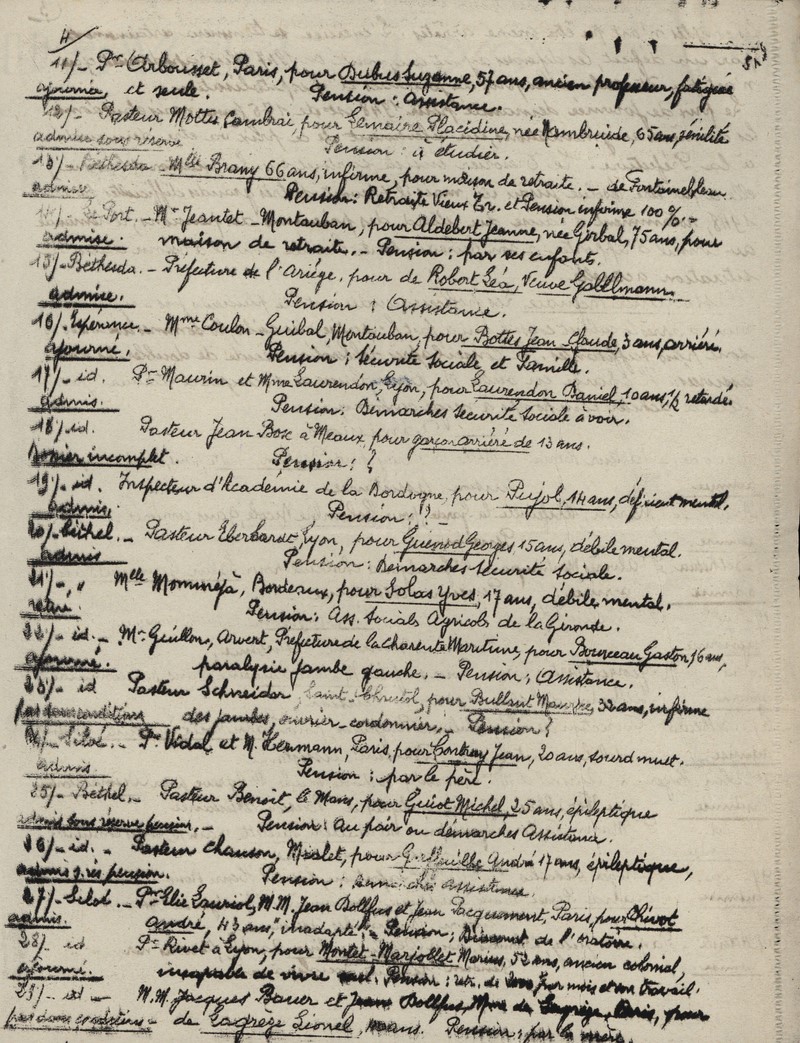 4
11/- Pr Arbousset, Paris, pour Dubus Suzanne, 57 ans, ancien professeur, fatiguée
ajournée, et seule. Pension : Assistance.
12/- Pasteur Mottes Cambrai pour Lemaire Placidine, née Hambruide, 65 ans, sénilité
admise sous réserve Pension : à étudier.
13/- Béthesda - Melle Brany 66 ans, infirme, pour maison de retraite. - de Fontainebleau
admise Pension : Retraite Vieux Tr. et Pension infirme 100 %. -
14/- Le Port. - Mr Jeantet - Montauban, pour Aldebert Jeanne, née Girbal, 75 ans, pour
admise. maison de retraite. - Pension : par ses enfants.
15/- Béthesda. - Préfecture de l'Ariége. pour de Robert Léa, Veuve
admise. Pension : Assistance.
16/- Espérance. - Mme Coulon - Guibal, Montauban, pour Bottes Jean-Claude, 3 ans, arriéré.
ajourné. Pension : Sécurité Sociale, et Famille.
17/- id. Pr Maurin et Mme Laurendon, Lyon, pour Laurendon Daniel, 10 ans, 1/2 retardé.
admis. Pension : Démarches Sécurité Sociale à voir.
18/- id. Pasteur Jean Bosc à Meaux pour garçon arriéré de 13 ans.
Dossier incomplet. Pension : ?
19/- id. Inspecteur d'Académie de la Dordogne, pour Pujol, 14 ans, déficient mental.
admis. Pension : ? -
20/- Béthel. - Pasteur Eberhardt, Lyon, pour Georges 15 ans, débile mental.
admis Pension : Démarches Sécurité Sociale.
21/- " Melle Momméjà, Bordeaux, pour Solas Yves, 17 ans, débile mental.
Pension : Ass. Socials Agricols de la Gironde.
22/- id. - Mr Guillon, Arvert, Préfecture de la Charente Maritime, pour Bourceau Gaston, 16 ans,
ajourné. paralysie jambe gauche. - Pension : Assistance.
23/- id Pasteur Schneider, Saint-Christol, pour Maurice, 32 ans, infirme
pas dans conditions des jambes, ouvrier-cordonnier. - Pension ?
24/- Siloé. - Pr Vidal, et M. Hermann, Paris, pour Jean, 20 ans, sourd muet.
admis Pension : par le père.
25/- Béthel. - Pasteur Benoit, le Mans, pour Guiot Michel, 25 ans, épileptique
admis sous réserve pension. - Pension : au pair ou démarches Assistance.
26/- id. - Pasteur Chauson, Mialet, pour André 17 ans, épileptique,
admis s. rés pension. Pension : Assistance.
27/- Siloé. - Pr Elie Lauriol, M.M. Jean Dollfus et Jean Jacquemont, Paris, pour Chivot
admis. André, 43 ans, "inadapté". - Pension : Diaconat de l'oratoire.
28/ id Pr Rivet à Lyon, pour Montet-Marjollet Marius, 52 ans, ancien colonial,
ajourné. incapable de vivre seul. Pension : retr. de par mois et son travail.
29/- id - M.M. Jacques Bauer et Jean Dollfus, Mme de Lagrèze, Paris, pour
pas dans conditions - de Lagrèze Lionel, ans. Pension : par la mère.